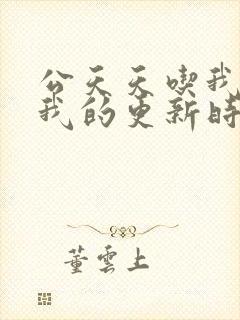 公天天喫我
我的更新时
董雲上